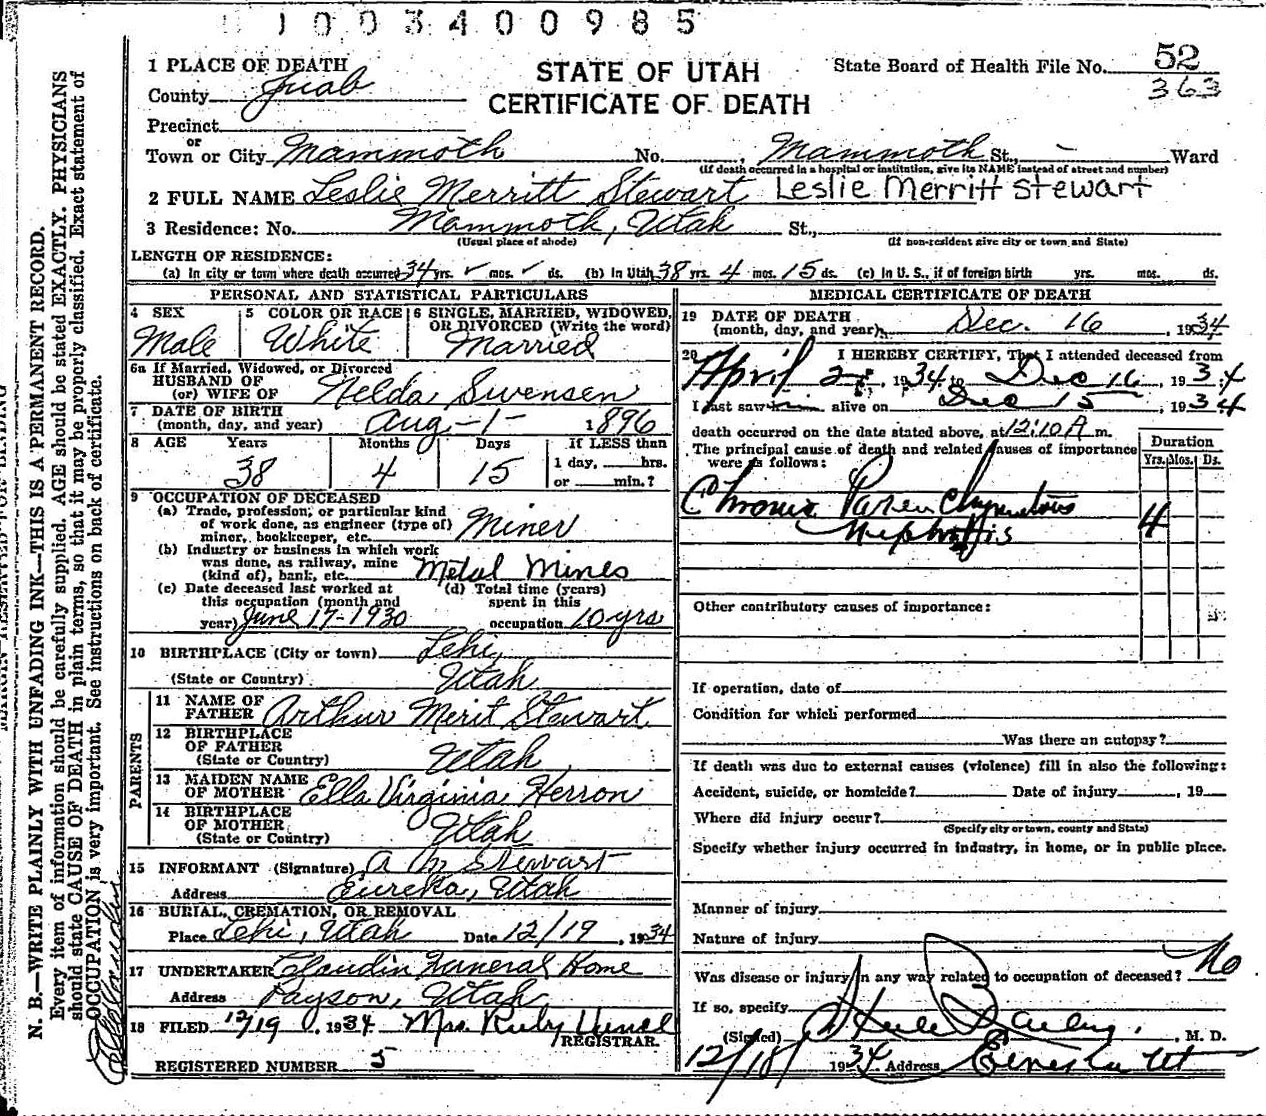 1003400985
1 PLACE OF DEATH
STATE OF UTAH
CERTIFICATE OF DEATH
State Board of Health File No. 52
363
County Juab
Precinct
or
Town or City Mammoth No. , Mammoth St., - Ward
(If death occurred in a hospital or institution, give its NAME instead of street and number)
2 FULL NAME Leslie Merritt Stewart Leslie Merritt Stewart
3 Residence: No. Mammoth, Utah St.,
(Usual place of abode) (If non-resident give city or town and State)
LENGTH OF RESIDENCE:
(a) In city or town where death occurred 34 yrs. ✓ mos. ✓ ds. (b) In Utah 38 yrs. 4 mos. 15 ds. (c) In U. S., if of foreign birth yrs. mos. ds.
PERSONAL AND STATISTICAL PARTICULARS
4 SEX 5 COLOR OR RACE 6 SINGLE, MARRIED, WIDOWED,
OR DIVORCED (Write the word)
Male White Married
6a If Married, Widowed, or Divorced
HUSBAND OF
(or) WIFE OF Nelda Swensen
7 DATE OF BIRTH
(month, day, and year) Aug - 1 - 1896
8 AGE Years Months Days If LESS than
1 day, hrs.
or min.?
38 4 15
9 OCCUPATION OF DECEASED
(a) Trade, profession, or particular kind
of work done, as engineer (type of)
miner, bookkeeper, etc. Miner
(b) Industry or business in which work
was done, as railway, mine
(kind of), bank, etc. Metal Mines
(c) Date deceased last worked at
this occupation (month and
year) June 17-1930
(d) Total time (years)
spent in this
occupation 10 yrs
10 BIRTHPLACE (City or town) Lehi,
(State or Country) Utah
PARENTS
11 NAME OF
FATHER Arthur Merit Stewart
12 BIRTHPLACE
OF FATHER
(State or Country) Utah
13 MAIDEN NAME
OF MOTHER Ella Virginia Herron
14 BIRTHPLACE
OF MOTHER
(State or Country) Utah
15 INFORMANT (Signature) A M Stewart
Address Eureka, Utah
16 BURIAL, CREMATION, OR REMOVAL
Place Lehi, Utah Date 12/19, 1934
17 UNDERTAKER Claudin Funeral Home
Address Payson, Utah
18 FILED 12/19, 1934 Mrs. Ruby
REGISTRAR.
REGISTERED NUMBER 5
MEDICAL CERTIFICATE OF DEATH
19 DATE OF DEATH
(month, day, and year) Dec. 16, 1934
20 I HEREBY CERTIFY, That I attended deceased from
April, 1934 to Dec 16, 1934
I last saw him alive on Dec 15, 1934
death occurred on the date stated above, at 12:10 A m.
The principal cause of death and related causes of importance
were as follows:
Duration
Yrs. Mos. Ds.
Chronic Parenchymatous
Nephritis 4
Other contributory causes of importance:
If operation, date of
Condition for which performed
Was there an autopsy?
If death was due to external causes (violence) fill in also the following:
Accident, suicide, or homicide? Date of injury , 19
Where did injury occur?
(Specify city or town, county and State)
Specify whether injury occurred in industry, in home, or in public place.
Manner of injury
Nature of injury
Was disease or injury in any way related to occupation of deceased? No
If so, specify
(Signed) Steele Bailey, M. D.
12/18/ 1934 Address Eureka Ut
N. B.—WRITE PLAINLY WITH UNFADING INK—THIS IS A PERMANENT RECORD.
Every item of information should be carefully supplied. AGE should be stated EXACTLY. PHYSICIANS
should state CAUSE OF DEATH in plain terms, so that it may be properly classified. Exact statement of
OCCUPATION is very important. See instructions on back of certificate.